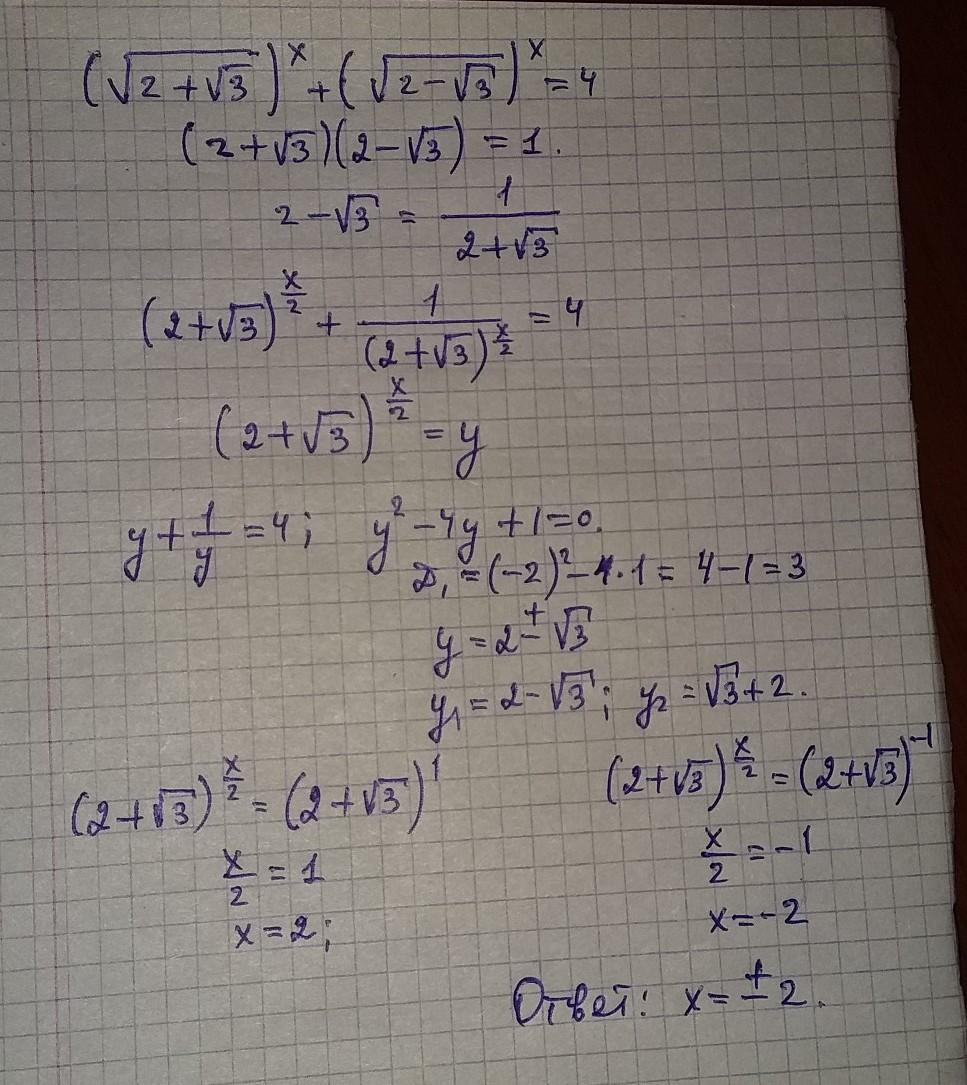 (√(2+√3))^x + (√(2-√3))^x = 4
(2+√3)(2-√3) = 1.
2-√3 = 1/(2+√3)
(2+√3)^(x/2) + 1/(2+√3)^(x/2) = 4
(2+√3)^(x/2) = y
y + 1/y = 4; y² - 4y + 1 = 0.
D₁ = (-2)² - 1·1 = 4-1 = 3
y = 2 ± √3
y₁ = 2-√3; y₂ = √3+2.
(2+√3)^(x/2) = (2+√3)^1 (2+√3)^(x/2) = (2+√3)^(-1)
x/2 = 1 x/2 = -1
x = 2; x = -2
Ответ: x = ± 2.